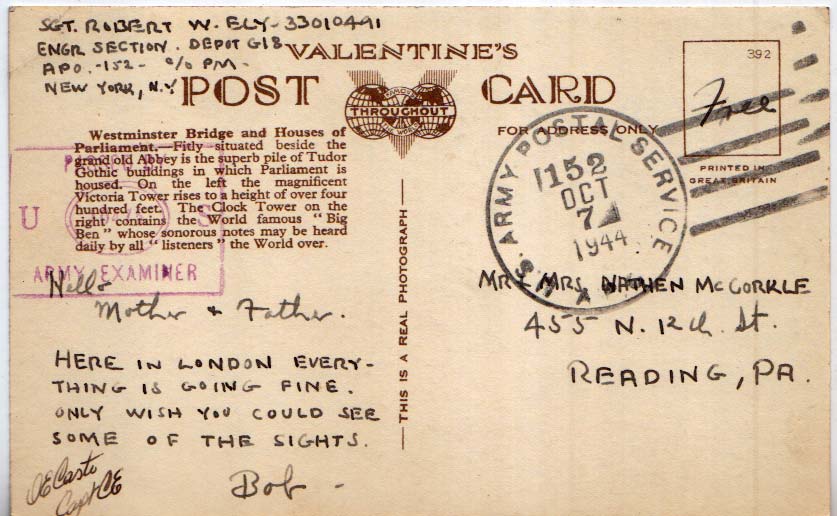 SGT. ROBERT W. ELY - 33010491
ENGR SECTION. DEPOT G18
APO. -152- c/o PM -
NEW YORK, N.Y.
VALENTINE'S
POST CARD
THROUGHOUT
THE WORLD
FOR ADDRESS ONLY
392
Free
PRINTED IN
GREAT BRITAIN
Westminster Bridge and Houses of
Parliament.—Fitly situated beside the
grand old Abbey is the superb pile of Tudor
Gothic buildings in which Parliament is
housed. On the left the magnificent
Victoria Tower rises to a height of over four
hundred feet. The Clock Tower on the
right contains the World famous "Big
Ben" whose sonorous notes may be heard
daily by all "listeners" the World over.
U S
ARMY EXAMINER
U.S. ARMY POSTAL SERVICE
152
OCT
7
1944
Hello
Mother & Father.
HERE IN LONDON EVERY-
THING IS GOING FINE.
ONLY WISH YOU COULD SEE
SOME OF THE SIGHTS.
Bob -
Capt CE
THIS IS A REAL PHOTOGRAPH
MR & MRS. NATHEN MCCORKLE
455 N. 12th St.
READING, PA.